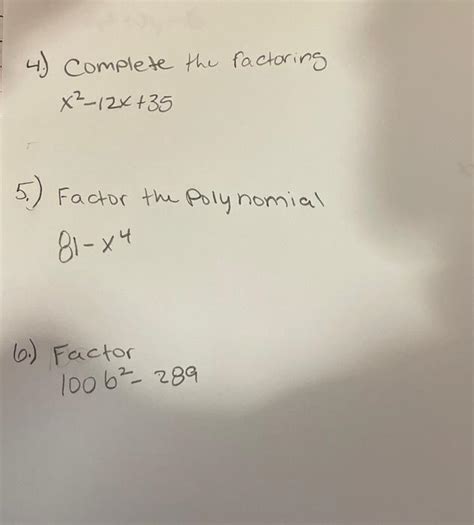 4.) Complete the factoring
x²-12x+35
5.) Factor the Polynomial
81-x⁴
6.) Factor
100b²- 289